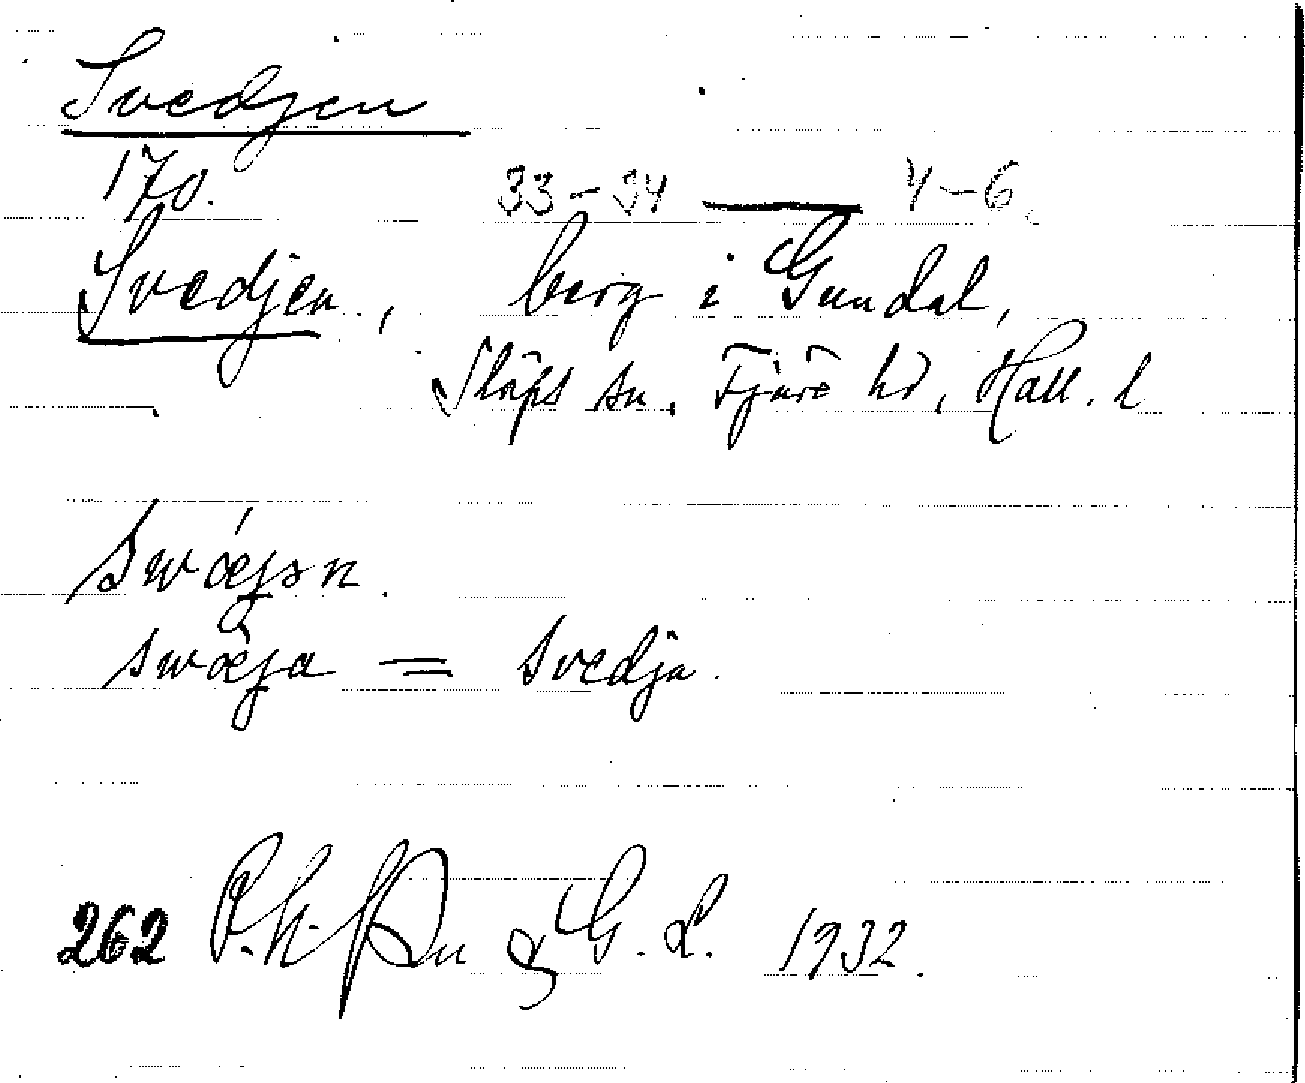 Svedjen
170. 33-34 — 4-6.
Svedjen, berg i Gundal,
Släps sn. Fjäre hd, Hall. l
swǽjən.
swæja = svedja.
262 & G. L. 1932.